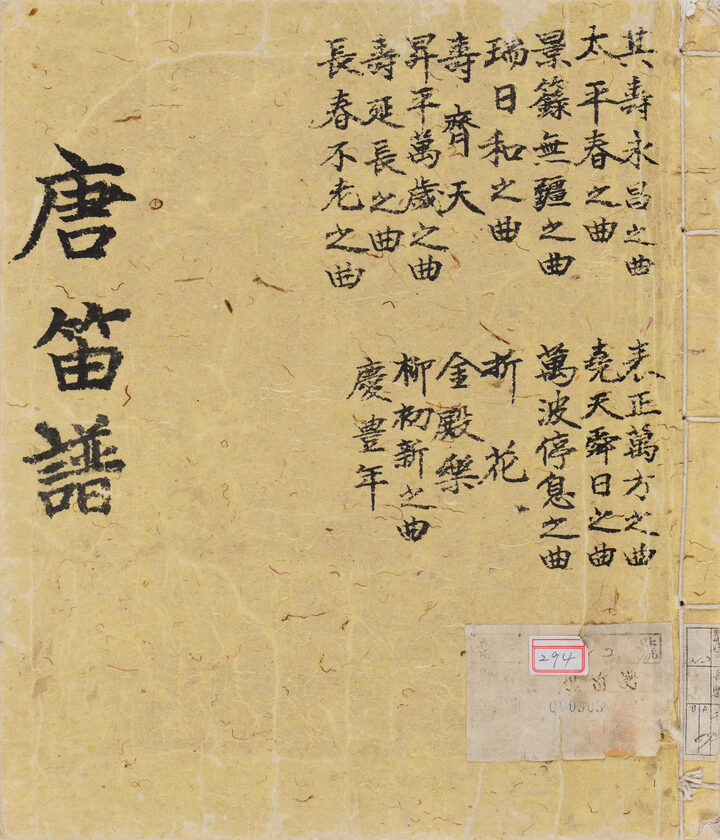 其壽永昌之曲
太平春之曲
景籙無疆之曲
瑞日和之曲
壽齊天
昇平萬歲之曲
壽延長之曲
長春不老之曲
表正萬方之曲
堯天舜日之曲
萬波停息之曲
折花
金殿樂
柳初新之曲
慶豊年
唐笛譜
號
294
000303